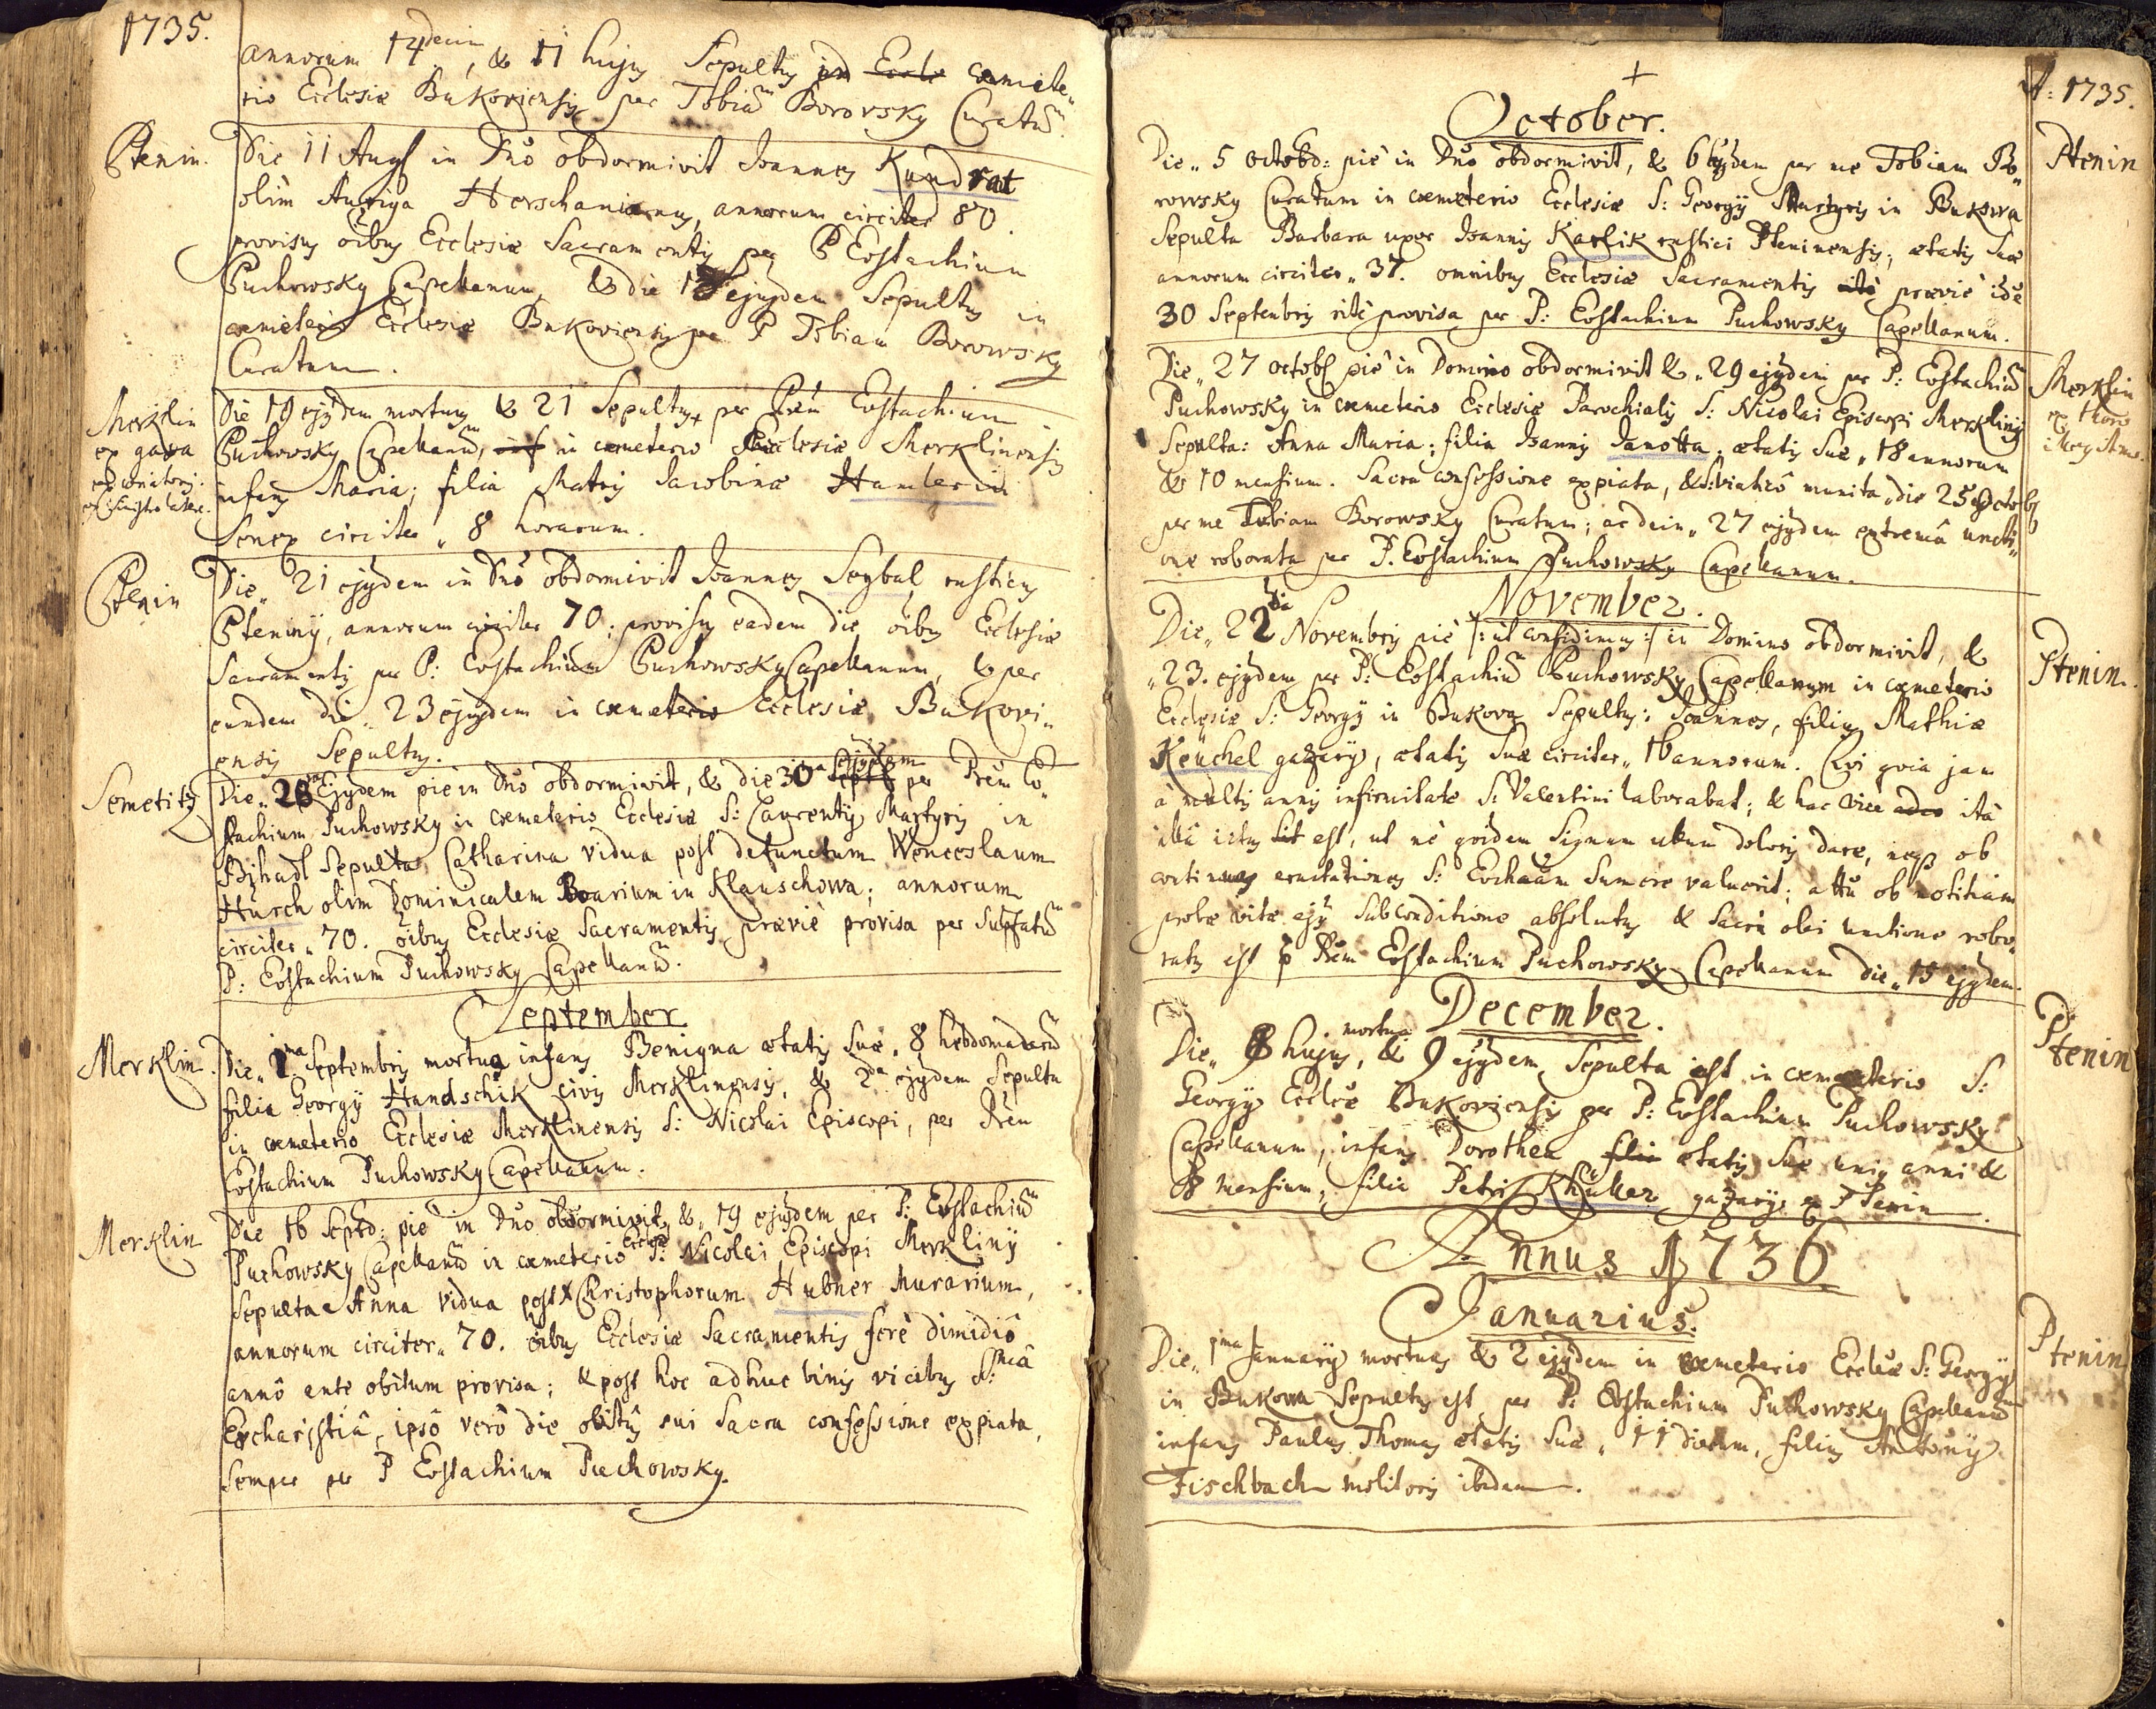 1735.
annorum 14decim, & 11 hujus Sepultus in Eccle cœmete„
rio Ecclesiæ Bukoviensis per Tobiam Borovsky Curatum.
Ptenin. Die 11 Aug in Dño obdormivit Joannes Kundrat
olim Auriga Herschanianus, annorum circiter 80.
provisus oibus Ecclesiæ Sacramentis per P Eustachium
Puchowsky Capellanum, & die ejusdem Sepultus in
cœmeterio Ecclesiæ Bukoviensis per P Tobiam Borowsky
Curatum.
Merklin
ex gaza
Die 19 ejusdem mortuus & 21 Sepultus per Prem Eustachium
Puchowsky Capellanum, in cœmeterio Ecclesiæ Merklinensis
infans Maria; filia Matris Jacobinæ
Senex circiter „ 8 horarum.
Ptenin Die „ 21 ejusdem in Dño obdormivit Joannes Seybal, rusticus
Pteninÿ, annorum circiter 70; provisus eadem die oibus Ecclesiæ
Sacramentis per P: Eustachium Puchowsky Capellanum, & per
eundem die „ 23 ejusdem in cœmeterio Ecclesiæ Bukovi„
ensis Sepultus.
Semetitz Die „ 28va Ejusdem pie in Dño obdormivit, & die 30ma Septb ejusdem per Prem Eo„
stachium Puchowsky in cœmeterio Ecclesiæ S: Laurentÿ Martyris in
Sepulta Catharina vidua post defunctum Wenceslaum
Hurch olim Dominicalem Boarium in Klauschowa; annorum
circiter „ 70. oibus Ecclesiæ Sacramentis prævie provisa per Supfatum
P: Eostachium Puchowsky Capellanum.
September.
Merklin. Die „ 1ma Septembris mortua infans Benigna ætatis suæ „ 8 hebdomadarum
filia Georgÿ Handschik civis Merklinensis, & 2da ejusdem Sepulta
in cœmeterio Ecclesiæ Merklinensis S: Nicolai Episcopi, per Prem
Eostachium Puchowsky Capellanum.
Merklin Die 16 Septb: pie in Dño obdormivit, & „ 19 ejusdem per P: Eostachium
Puchowsky Capellanum in cœmeterio Eccliæ S: Nicolai Episcopi Merklinÿ
Sepulta Anna vidua post Christophorum Hubner Murarium,
annorum circiter „ 70. oibus Ecclesiæ Sacramentis ferè dimidiô
annô ante obitum provisa; & post hoc adhuc binis vicibus S:mâ
Eucharistiâ, ipsô verô die obitûs sui Sacra confessione expiata,
semper per P Eostachium Puchowsky.
A: 1735.
+
October.
Ptenin
Die „ 5 octobr: piè in Dño obdormivit, & 6 ejusdem per me Tobiam Bo„
rowsky Curatum in cœmeterio Ecclesiæ S: Georgÿ Martyris in Bukowa
Sepulta Barbara uxor Joannis Karlik rustici Pteninensis, ætatis suæ
annorum circiter „ 37. omnibus Ecclesiæ Sacramentis ritè prævie
30 Septembris ritè provisa per P: Eostachium Puchowsky Capellanum.
Merklin
ex
Die „ 27 octobr piè in Domino obdormivit & „ 29 ejusdem per P: Eostachium
Puchowsky in cœmeterio Ecclesiæ Parochialis S: Nicolai Episcopi Merklinÿ
Sepulta: Anna Maria; filia Joannis Janotta, ætatis suæ „ 18 annorum
& 10 mensium. Sacra confessione expiata, & S: viaticô munita, die 25 Octobr
per me Tobiam Borowsky Curatum; ac dein „ 27 ejusdem extremâ uncti„
one roborata per P. Eostachium Puchowsky Capellanum.
November.
Ptenin.
Die „ 22da Novembris piè /: ut confidimus :/ in Domino obdormivit, &
„ 23. ejusdem per P: Eostachium Puchowsky Capellanum in cœmeterio
Ecclesiæ S: Georgÿ in Bukova Sepultus: Joannes, filius Mathiæ
Keüchel gazarÿ, ætatis suæ circiter „ 16 annorum. Qvi qvia jam
à multis annis infirmitate S: Valentini laborabat; & hac vice adeo ità
ictus sit est, ut nè qvidem Signum ullum doloris dare, neqz ob
continuas eructationes S: Euchariam Sumere valuerit; attñ ob notitiam
probæ vitæ ejus Subconditione absolutus & Sacra olei unctione robo„
ratus est p Prem Eostachium Puchowsky Capellanum die „ 19 ejusdem.
December.
Ptenin
Die „ 8 hujus, mortua & 9 ejusdem Sepulta est in cœmeterio S:
Georgÿ Eccleæ Bukoviensis per P: Eostachium Puchowsky
Capellanum, infans Dorothea filia ætatis suæ unius anni &
8 mensium, filia Petri Khuller gazarÿ ex Ptenin.
Annus 1736
Januarius.
Ptenin
Die „ 1ma Januarÿ mortuus & 2 ejusdem in cœmeterio Eccleæ S: Georgÿ
in Bukowa Sepultus est per P: Eostachium Puchowsky Capellanum
infans Paulus Thomas ætatis suæ „ 11 dierum, filius Antonÿ
Fischbach molitoris ibidem.